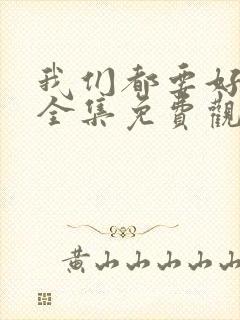 我们都要好
全集免費觀
黄山山山山